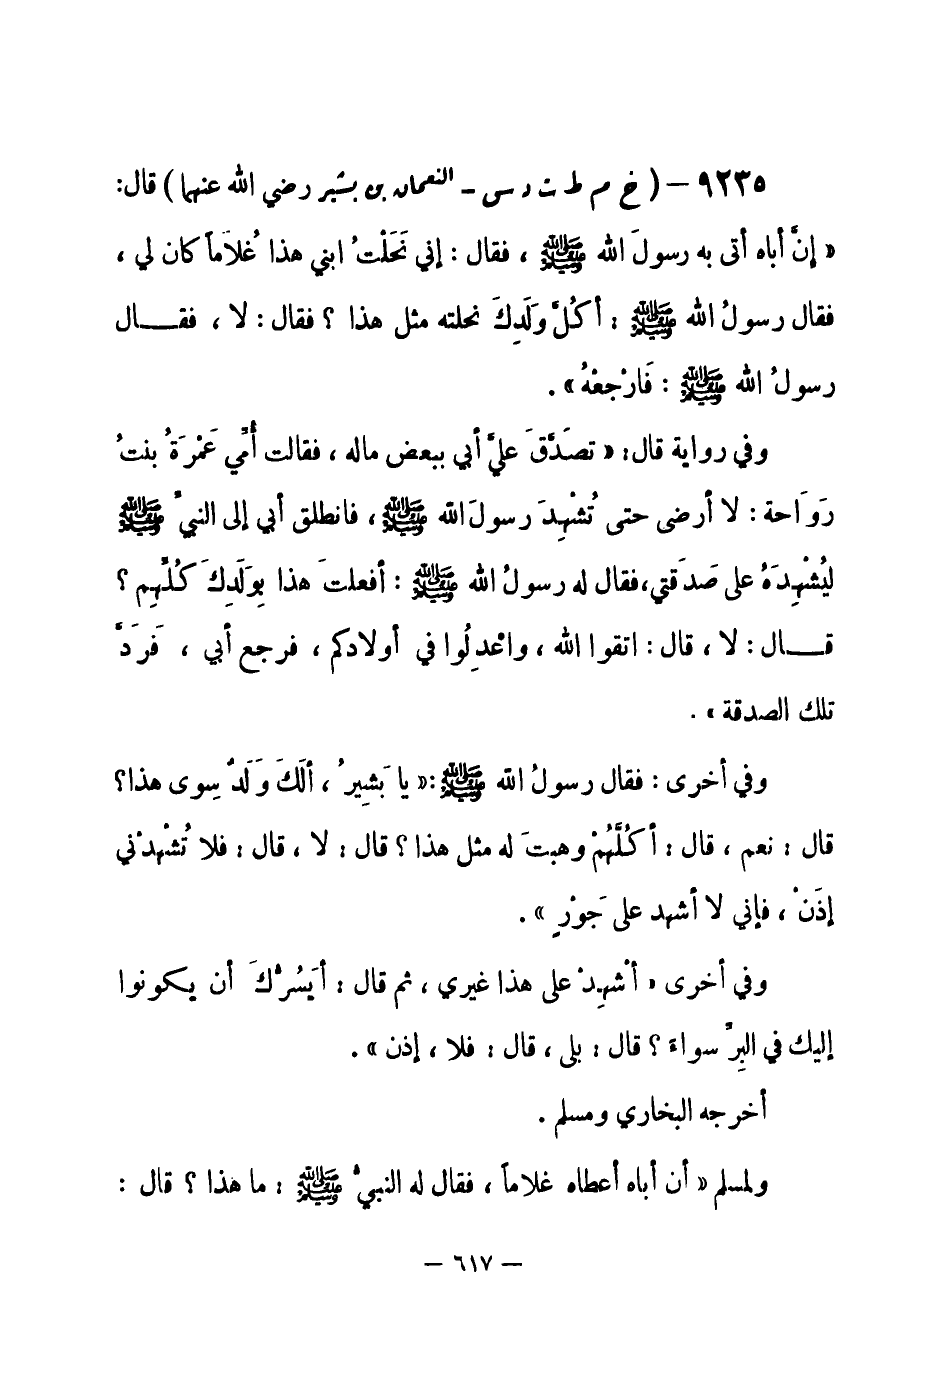 ٩٢٣٥ – ( خ م ط ت د س – النعمان بن بشير رضي الله عنهما ) قال:
« إنَّ أباه أتى به رسولَ الله ﷺ ، فقال : إني نَحَلْتُ ابني هذا غُلاَماً كان لي ،
فقال رسولُ الله ﷺ : أكُلَّ وَلَدِكَ نحلته مثل هذا ؟ فقال : لا ، فقـــال
رسولُ الله ﷺ : فَارْجعْهُ» .
وفي رواية قال: « تصَدَّقَ عليَّ أبي ببعض ماله ، فقالت أُمِّي عَمْرَةُ بنتُ
رَوَاحة : لا أرضى حتى تُشْهِدَ رسولَ الله ﷺ ، فانطلق أبي إلى النبيِّ ﷺ
ليُشْهِدَهُ على صَدَقتي،فقال له رسولُ الله ﷺ : أفعلتَ هذا بِوَلَدِكَ كُلِّهِم ؟
قـــال : لا ، قال : اتقوا الله ، واعْدِلُوا في أولادكم ، فرجع أبي ، فَرَدَّ
تلك الصدقة » .
وفي أخرى : فقال رسولُ الله ﷺ :« يا بَشِيرُ ، ألَكَ وَلَدٌ سِوى هذا؟
قال : نعم ، قال : أكُلَّهُمْ وهبتَ له مثل هذا ؟ قال : لا ، قال : فلا تُشْهِدْني
إذَنْ ، فإني لا أشهد على جَوْرٍ » .
وفي أخرى « أشْهِدْ على هذا غيري ، ثم قال : أيَسُرُّكَ أن يكونوا
إليك في البِرِّ سواءً ؟ قال : بلى ، قال : فلا ، إذن » .
أخرجه البخاري ومسلم .
ولمسلم « أن أباه أعطاه غلاماً ، فقال له النبيُّ ﷺ : ما هذا ؟ قال :
– ٦١٧ –